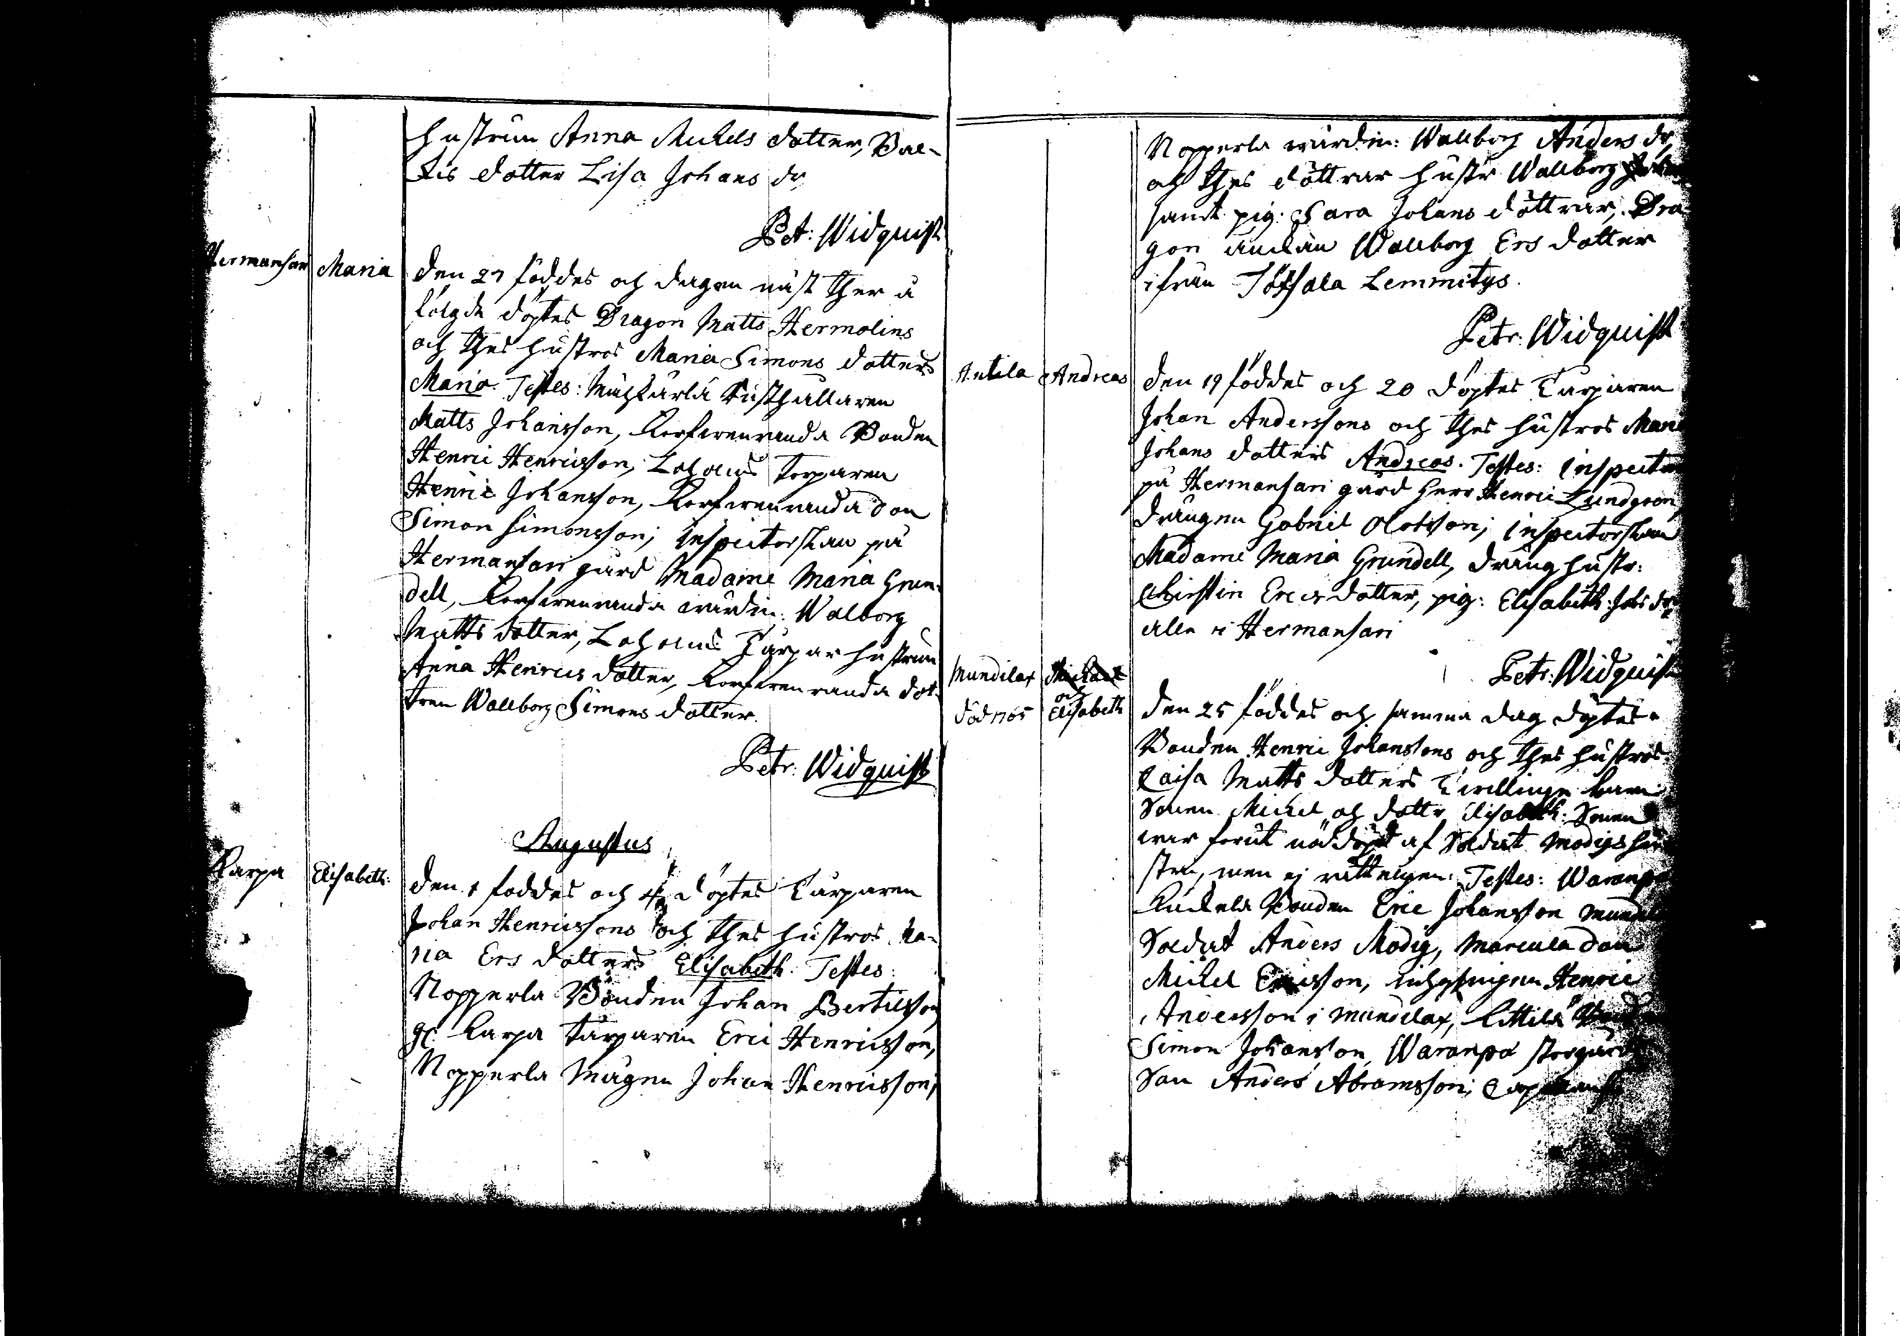 hustrun Anna Mickels dotter, Bal-
tis dotter Lisa Johans dr
Pet: Widquist
Hermansari Maria
den 27 föddes och dagen näst ther å
fölgde döptes Dragon Matts Hermolins
och thes hustros Maria Simons dotters
Maria. Testes: Rusthållaren
Matts Johansson, Bonden
Henric Henricsson, Torparen
Henric Johansson,
Simon Simonsson; Inspectorskan på
Hermansari gård Madame Maria Grun-
dell, wärdin: Walborg
Matts dotter, Torpar hustrun
Anna Henrics dotter, dot-
tren Wallborg Simons dotter.
Petr: Widquist
Augustus
Karpa Elisabeth.
den 1 föddes och 4 döptes Torparen
Johan Henricssons och thes hustros Ma-
ria Ers dotters Elisabeth. Testes:
Nopperla Bonden Johan Bertilsson
Karpa Torparen Eric Henricsson,
Nopperla Mågen Johan Henricsson;
Nopperla wärdin: Wallborg Anders dr
och thes döttrar hustr Wallborg
samt pig: Sara Johans döttrar, Dra-
gon änkan Wallborg Ers dotter
ifrån Lemmitys.
Petr: Widquist
Antila Andreas
den 19 föddes och 20 döptes Torparen
Johan Anderssons och thes hustros Maria
Johans dotters Andreas. Testes: Inspectoren
på Hermansari gård Herr Henric Lundgren
drängen Gabriel Olofsson; Inspectorskan
Madame Maria Grundell, dräng hustr:
Christin Erics dotter, pig: Elisabeth Johs dr
alle i Hermansari
Petr: Widquist
Mundilax Michael
och
död 1765 Elisabeth
den 25 föddes och samma dag döptes
Bonden Henric Johanssons och thes hustros
Caisa Matts dotters Twillinge barn
Sonen Michel och dottr Elisabeth. Sonen
war förut nöddöpt af Soldat Modigs hu-
stru, men ej rätteligen. Testes:
Bonden Eric Johansson
Soldat Anders Modig,
Michel Ericsson, Henric
Andersson i Mundilax,
Simon Johansson, Waranpä
Son Anders Abramsson;